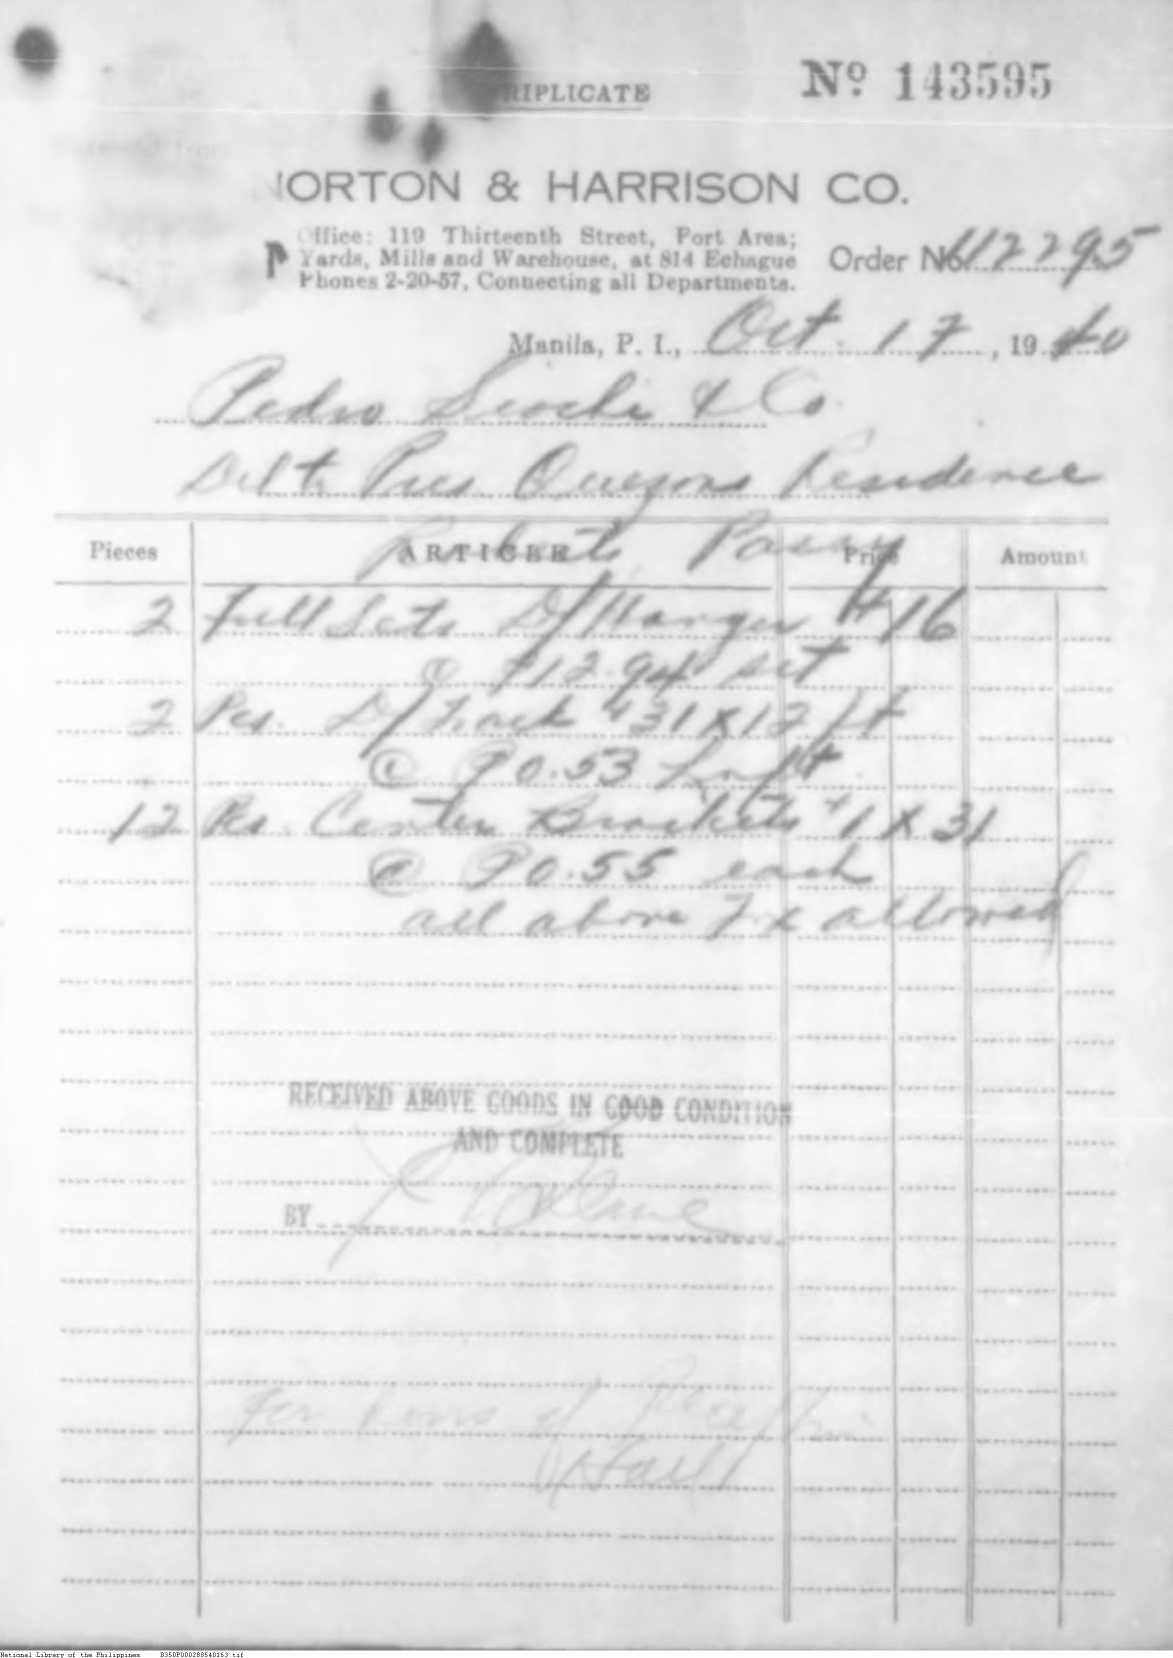 TRIPLICATE
Nº 143595
NORTON & HARRISON CO.
Office: 119 Thirteenth Street, Port Area;
Yards, Mills and Warehouse, at 814 Echague
Phones 2-20-57, Connecting all Departments.
Order No. 112295
Manila, P. I., Oct. 17, 1940
Pedro Siochi & Co.
Del to Pres Quezons Residence
Roberts Pasay
Pieces ARTICLE Price Amount
2 Full Sets D/Hanger #16
@ ₱12.94 set
2 Pcs. D/Track #31 x 12 ft
@ ₱0.53 Ln ft
12 Pcs. Center Brackets #1 x 31
@ ₱0.55 each
all above allowed
RECEIVED ABOVE GOODS IN GOOD CONDITION
AND COMPLETE
BY
For doors of
Hall
National Library of the Philippines D350P000288540163.tif